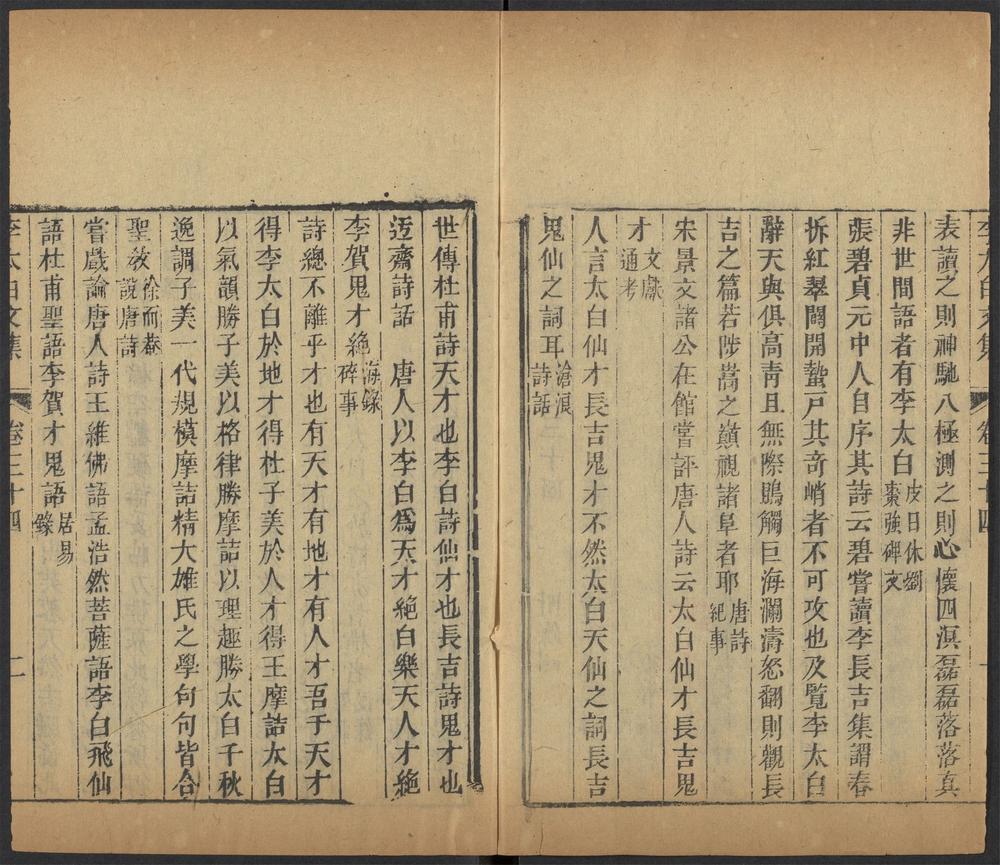 李太白文集 卷三十四
表讀之則神馳八極測之則心懷四溟磊磊落落真
非世間語者有李太白 皮日休劉棗強碑文
張碧貞元中人自序其詩云碧嘗讀李長吉集謂春
拆紅翠闢開蟄戸其奇峭者不可攻也及覽李太白
辭天與俱高青且無際鵾觸巨海瀾濤怒翻則觀長
吉之篇若陟嵩之巔視諸阜者耶 唐詩紀事
宋景文諸公在館嘗評唐人詩云太白仙才長吉鬼
才 文獻通考
人言太白仙才長吉鬼才不然太白天仙之詞長吉
鬼仙之詞耳 滄浪詩話
世傳杜甫詩天才也李白詩仙才也長吉詩鬼才也
迃齋詩話 唐人以李白爲天才絶白樂天人才絶
李賀鬼才絶 海錄碎事
詩總不離乎才也有天才有地才有人才吾于天才
得李太白於地才得杜子美於人才得王摩詰太白
以氣韻勝子美以格律勝摩詰以理趣勝太白千秋
逸調子美一代規模摩詰精大雄氏之學句句皆合
聖敎 徐而菴說唐詩
嘗戲論唐人詩王維佛語孟浩然菩薩語李白飛仙
語杜甫聖語李賀才鬼語 居易錄
李太白文集 卷三十四 二